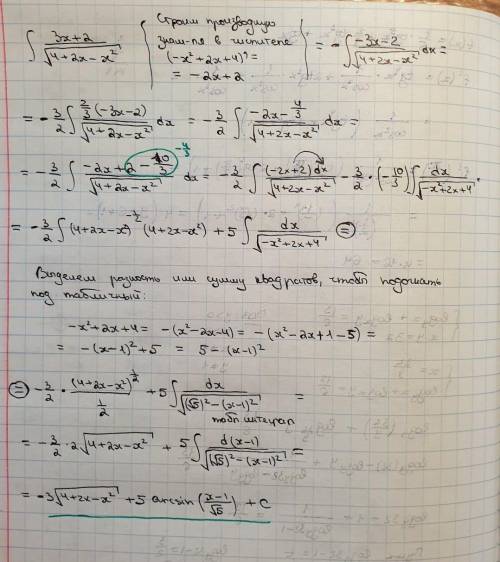 ∫ (3x+2)/√(4+2x-x²) { Строим производную знам-ля в числителе (-x²+2x+4)' = = -2x+2 } = -∫ (-3x-2)/√(4+2x-x²) dx =
= -3/2 ∫ (2/3 (-3x-2))/√(4+2x-x²) dx = -3/2 ∫ (-2x - 4/3)/√(4+2x-x²) dx =
= -3/2 ∫ (-2x+2 - 10/3)/√(4+2x-x²) dx = -3/2 ∫ ((-2x+2) dx)/√(4+2x-x²) - 3/2 · (-10/3) ∫ dx/√(-x²+2x+4) ·
-4/3
= -3/2 ∫ (4+2x-x²)^(-1/2) (4+2x-x²) + 5 ∫ dx/√(-x²+2x+4) =
Выделем разность или сумму квадратов, чтобы подогнать
под табличный:
-x²+2x+4 = -(x²-2x-4) = -(x²-2x+1-5) =
= -(x-1)²+5 = 5-(x-1)²
= -3/2 · (4+2x-x²)^(1/2)/(1/2) + 5 ∫ dx/√((√5)²-(x-1)²) =
табл интеграл
= -3/2 · 2√(4+2x-x²) + 5 ∫ d(x-1)/√((√5)²-(x-1)²) =
= -3√(4+2x-x²) + 5 arcsin((x-1)/√5) + C